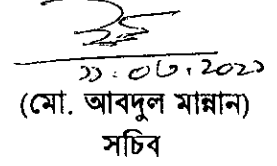 ১১.০৬.২০২১
(মো. আবদুল মান্নান)
সচিব